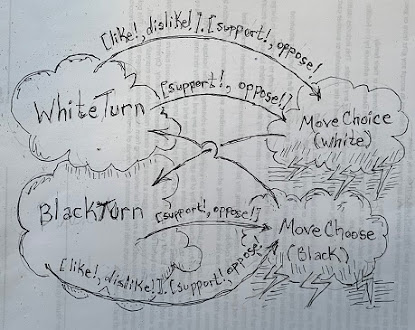 [like!, dislike!], [support!, oppose!
WhiteTurn
[support!, oppose!]
MoveChoice
(White)
BlackTurn
[support!, oppose!]
MoveChoose
(Black)
[like!, dislike!], [support!, oppose!